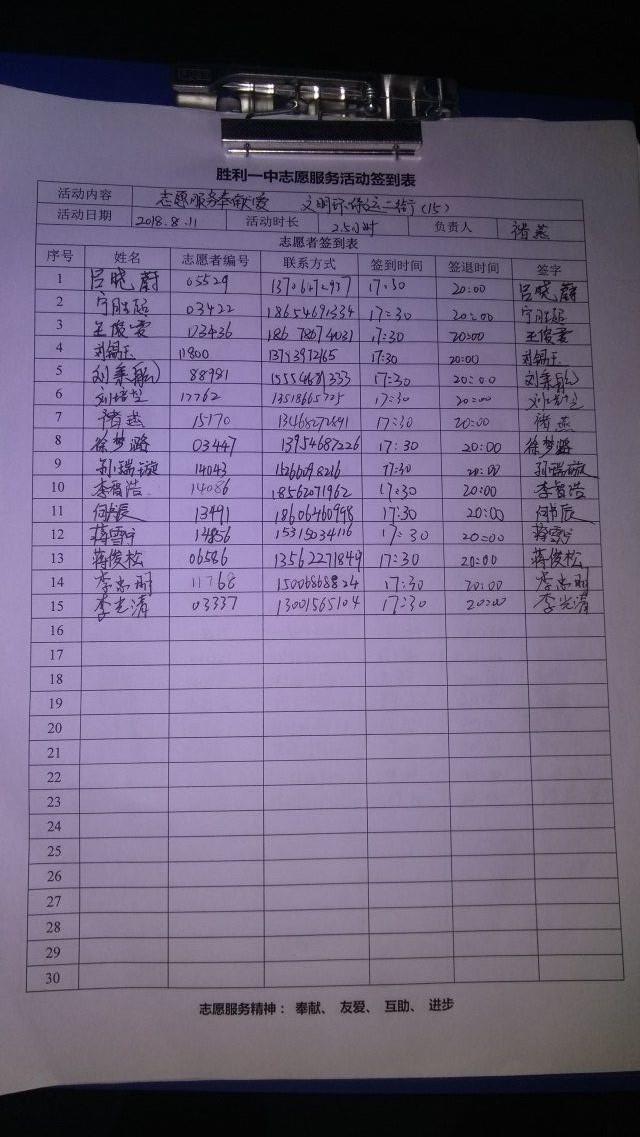 胜利一中志愿服务活动签到表
活动内容 志愿服务奉献爱 文明环保 (15)
活动日期 2018.8.11 活动时长 2.5小时 负责人 褚燕
志愿者签到表
序号 姓名 志愿者编号 联系方式 签到时间 签退时间 签字
1 吕晓蔚 05529 17:30 20:00 吕晓蔚
2 03422 18654691334 17:30 20:00
3 王俊雯 17:30 20:00 王俊雯
4 刘锡玉 11800 17:30 20:00 刘锡玉
5 88981 17:30 20:00
6 13518665725 17:30 20:00
7 褚燕 15170 17:30 20:00 褚燕
8 徐梦璐 03447 13954687226 17:30 20:00 徐梦璐
9 孙瑞璇 14043 17:30 20:00 孙瑞璇
10 李智浩 14086 18562071962 17:30 20:00 李智浩
11 13491 18606460998 17:30 20:00
12 蒋雪宁 14856 15315034116 17:30 20:00 蒋雪宁
13 蒋俊松 06586 13562271849 17:30 20:00 蒋俊松
14 11768 15006868824 17:30 20:00
15 李光清 03337 13001565104 17:30 20:00 李光清
16
17
18
19
20
21
22
23
24
25
26
27
28
29
30
志愿服务精神： 奉献、 友爱、 互助、 进步